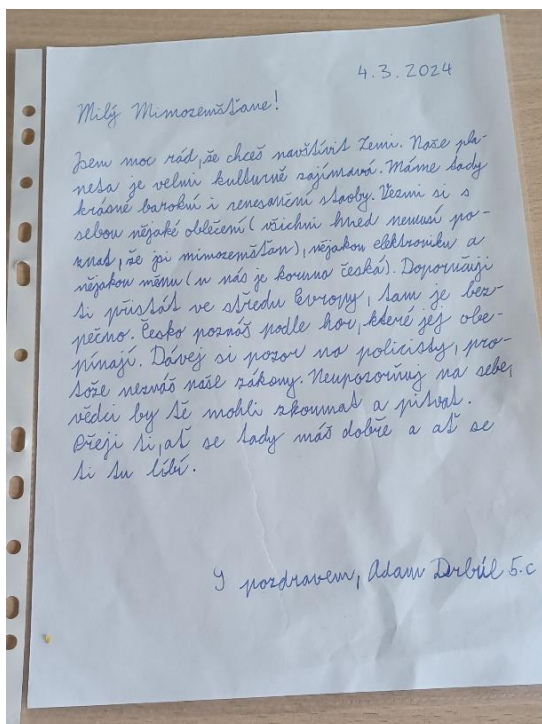 4.3.2024
Milý Mimozemšťane!
Jsem moc rád, že chceš navštívit Zemi. Naše pla-
neta je velmi kulturně zajímavá. Máme tady
krásné barokní i renesanční stavby. Vezmi si s
sebou nějaké oblečení (všichni hned nemusí po-
znat, že jsi mimozemšťan), nějakou elektroniku a
nějakou měnu (u nás je koruna česká). Doporučuji
ti přistát ve středu Evropy, tam je bez-
pečno. Česko poznáš podle hor, které jej obe-
pínají. Dávej si pozor na policisty, pro-
tože neznáš naše zákony. Neupozorňuj na sebe,
vědci by tě mohli zkoumat a pitvat.
Přeji ti, ať se tady máš dobře a ať se
ti tu líbí.
S pozdravem, Adam Drbúl 5.c